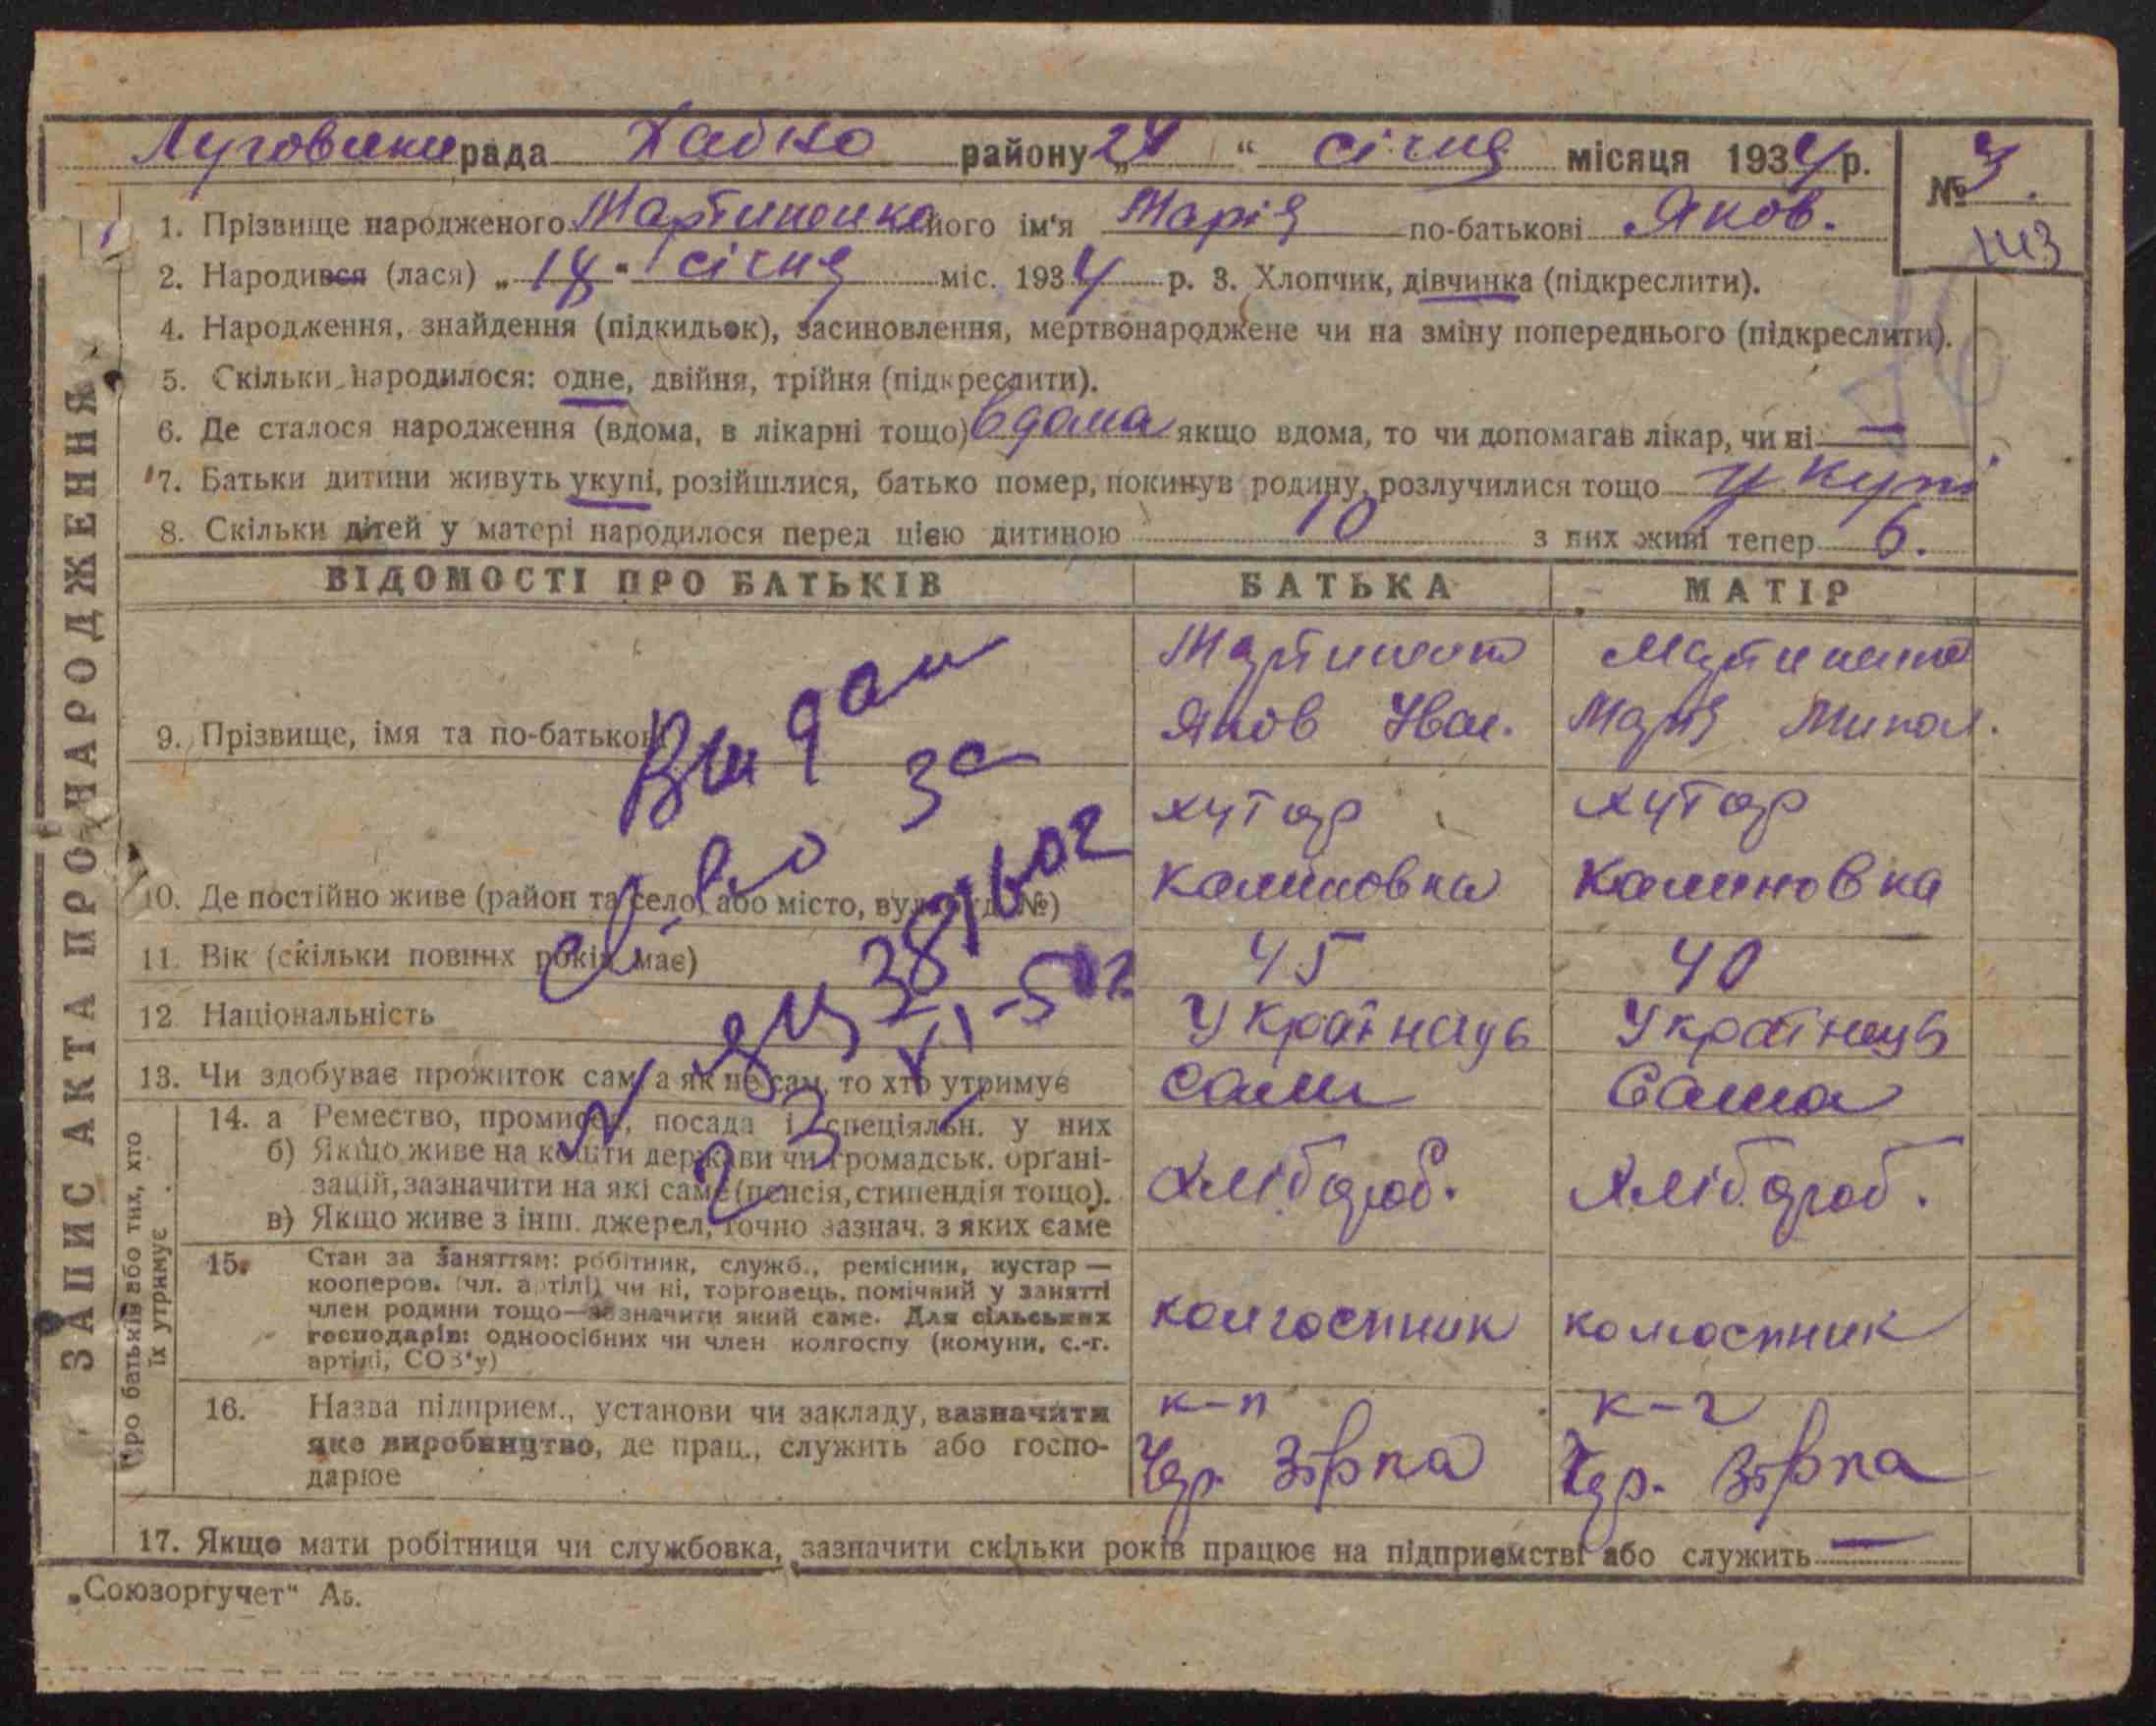 Луговики рада Хабно району „24“ січня місяця 1934 р.
№ 3.
143
1. Прізвище народженого Мартиненко його ім'я Марія по-батькові Яков.
2. Народився (лася) „18“ січня міс. 1934 р. 3. Хлопчик, дівчинка (підкреслити).
4. Народження, знайдення (підкидьок), засиновлення, мертвонароджене чи на зміну попереднього (підкреслити).
5. Скільки народилося: одне, двійня, трійня (підкреслити).
6. Де сталося народження (вдома, в лікарні тощо) вдома якщо вдома, то чи допомагав лікар, чи ні —
7. Батьки дитини живуть укупі, розійшлися, батько помер, покинув родину, розлучилися тощо укупі
8. Скільки дітей у матері народилося перед цією дитиною 10 з них живі тепер 6.
ЗАПИС АКТА ПРО НАРОДЖЕННЯ
ВІДОМОСТІ ПРО БАТЬКІВ БАТЬКА МАТІР
9. Прізвище, імя та по-батькові Мартиненко Яков Іван. Мартиненко Марія Микол.
10. Де постійно живе (район та село, або місто, вул., буд. №) хутор Калиновка хутор Калиновка
11. Вік (скільки повних років має) 45 40
12 Національність Українець Українець
13. Чи здобуває прожиток сам, а як не сам, то хто утримує Сам Сама
Про батьків або тих, хто їх утримує
14. а Ремество, промисел, посада і спеціяльн. у них
б) Якщо живе на кошти держави чи громадськ. органі-
зацій, зазначити на які саме (пенсія, стипендія тощо). Хлібороб. Хлібороб.
в) Якщо живе з інш. джерел, точно зазнач. з яких саме
15. Стан за заняттям: робітник, служб., ремісник, кустар —
кооперов. (чл. артілі) чи ні, торговець, помічний у занятті
член родини тощо—зазначити який саме. Для сільських
господарів: одноосібних чи член колгоспу (комуни, с.-г.
артілі, СОЗ'у) колгоспник колгоспник
16. Назва підприєм., установи чи закладу, зазначити
яке виробництво, де прац., служить або госпо-
дарює к-п Чер. Зірка к-г Чер. Зірка
17. Якщо мати робітниця чи службовка, зазначити скільки років працює на підприємстві або служить —
„Союзоргучет“ А5.
Видан
св-во за